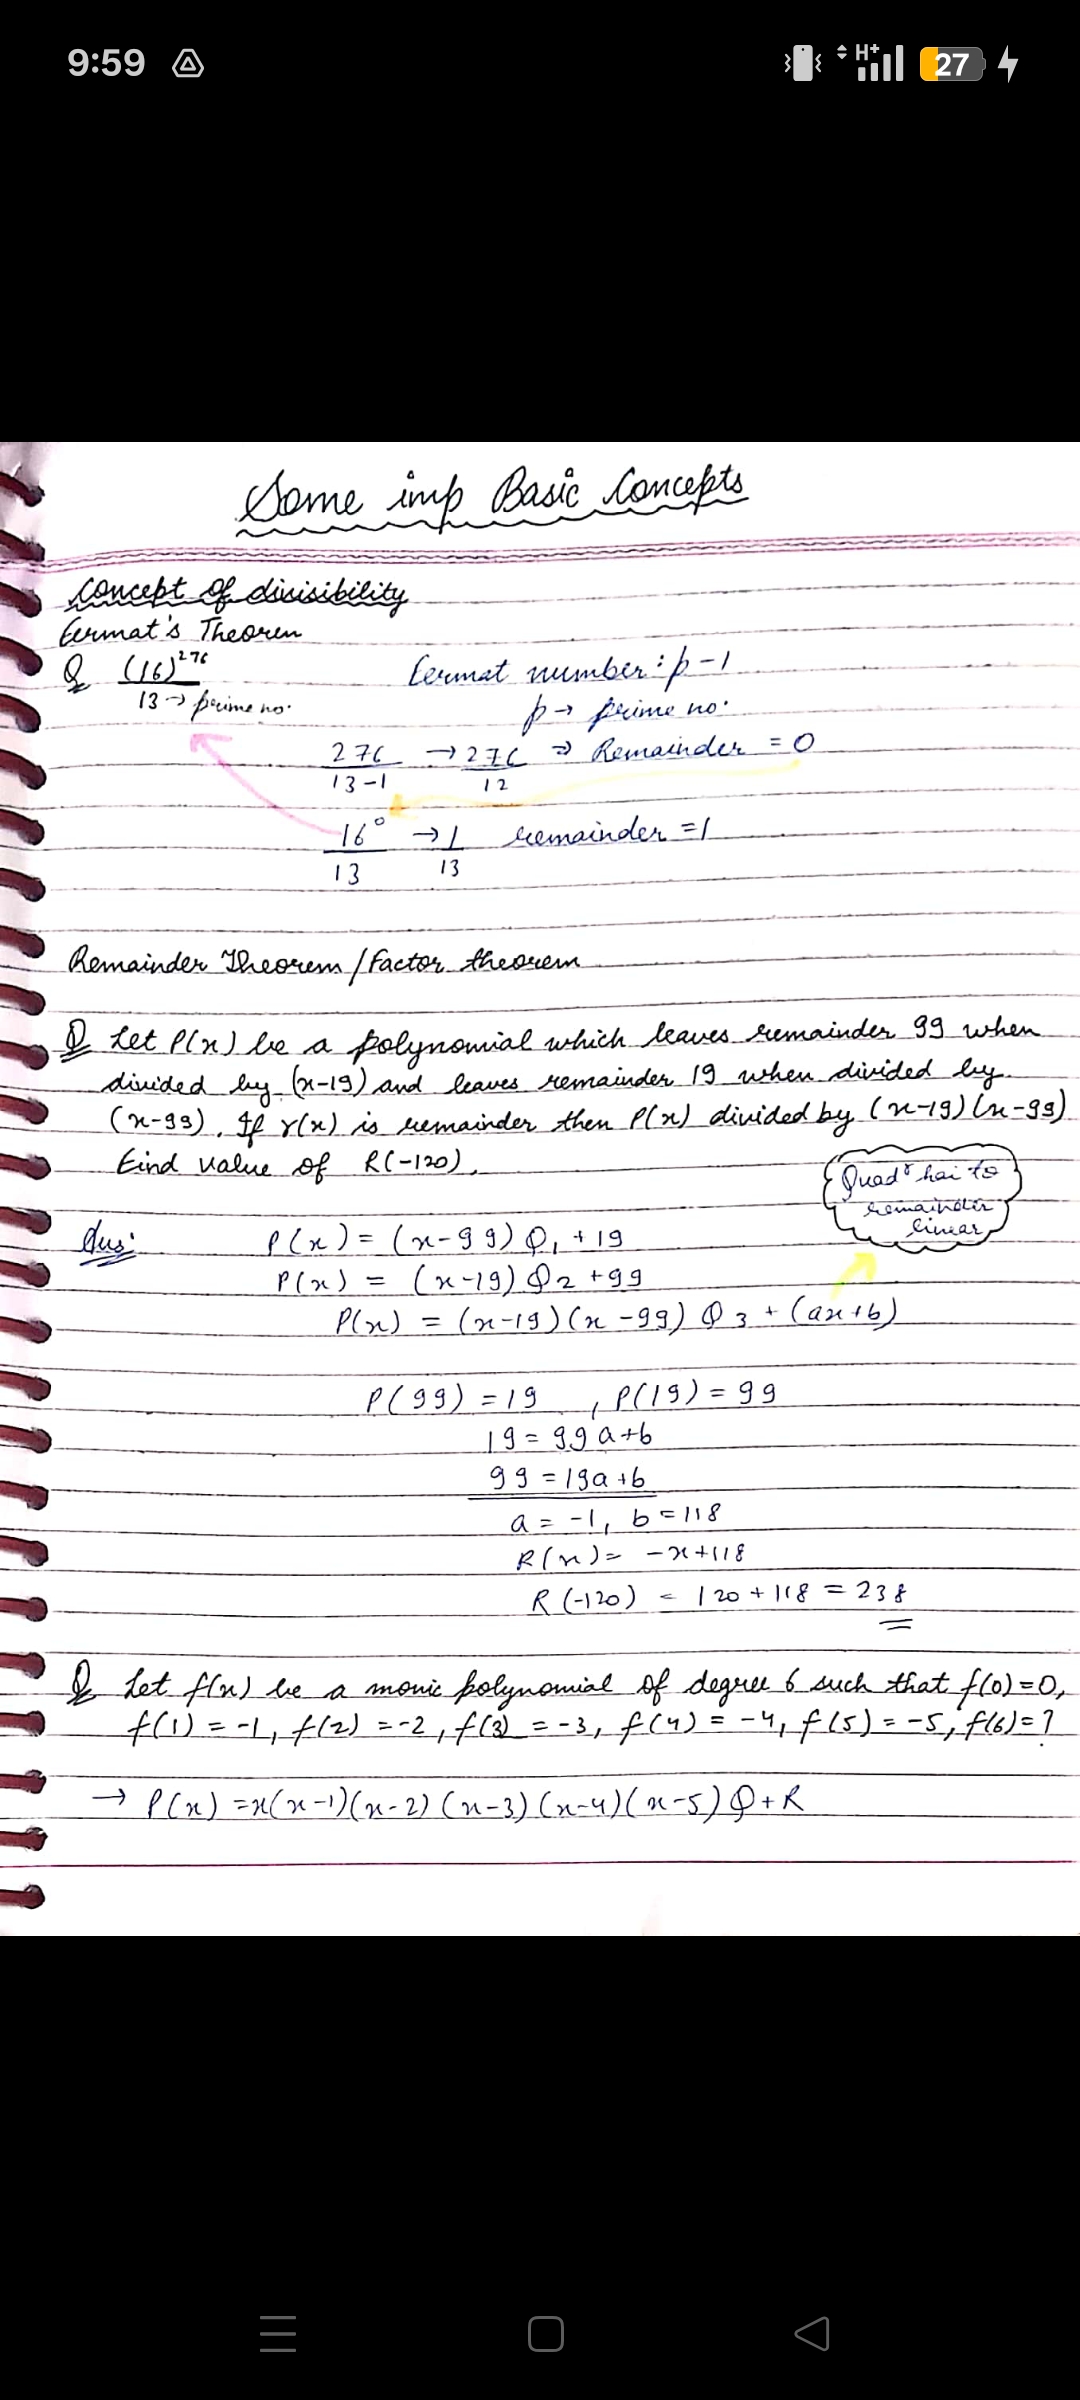 9:59 H+ 27
Some imp Basic Concepts
Concept of divisibility
Fermat's Theorem
Q (16)^276 / 13 → prime no.
Fermat number : p-1
p → prime no.
276/13-1 → 276/12 ⇒ Remainder = 0
16^0/13 → 1/13 remainder = 1
Remainder Theorem / Factor theorem
Q Let P(x) be a polynomial which leaves remainder 99 when
divided by (x-19) and leaves remainder 19 when divided by
(x-99). If r(x) is remainder then P(x) divided by (x-19)(x-99)
Find value of R(-120).
Quad^r hai to
remainder
linear
Ans: P(x) = (x-99) Q1 + 19
P(x) = (x-19) Q2 + 99
P(x) = (x-19)(x-99) Q3 + (ax+b)
P(99) = 19 , P(19) = 99
19 = 99a+b
99 = 19a+b
a = -1, b = 118
R(x) = -x+118
R(-120) = 120+118 = 238
Q Let f(x) be a monic polynomial of degree 6 such that f(0)=0,
f(1) = -1, f(2) = -2, f(3) = -3, f(4) = -4, f(5) = -5, f(6) = ?
→ P(x) = x(x-1)(x-2)(x-3)(x-4)(x-5) Q + R